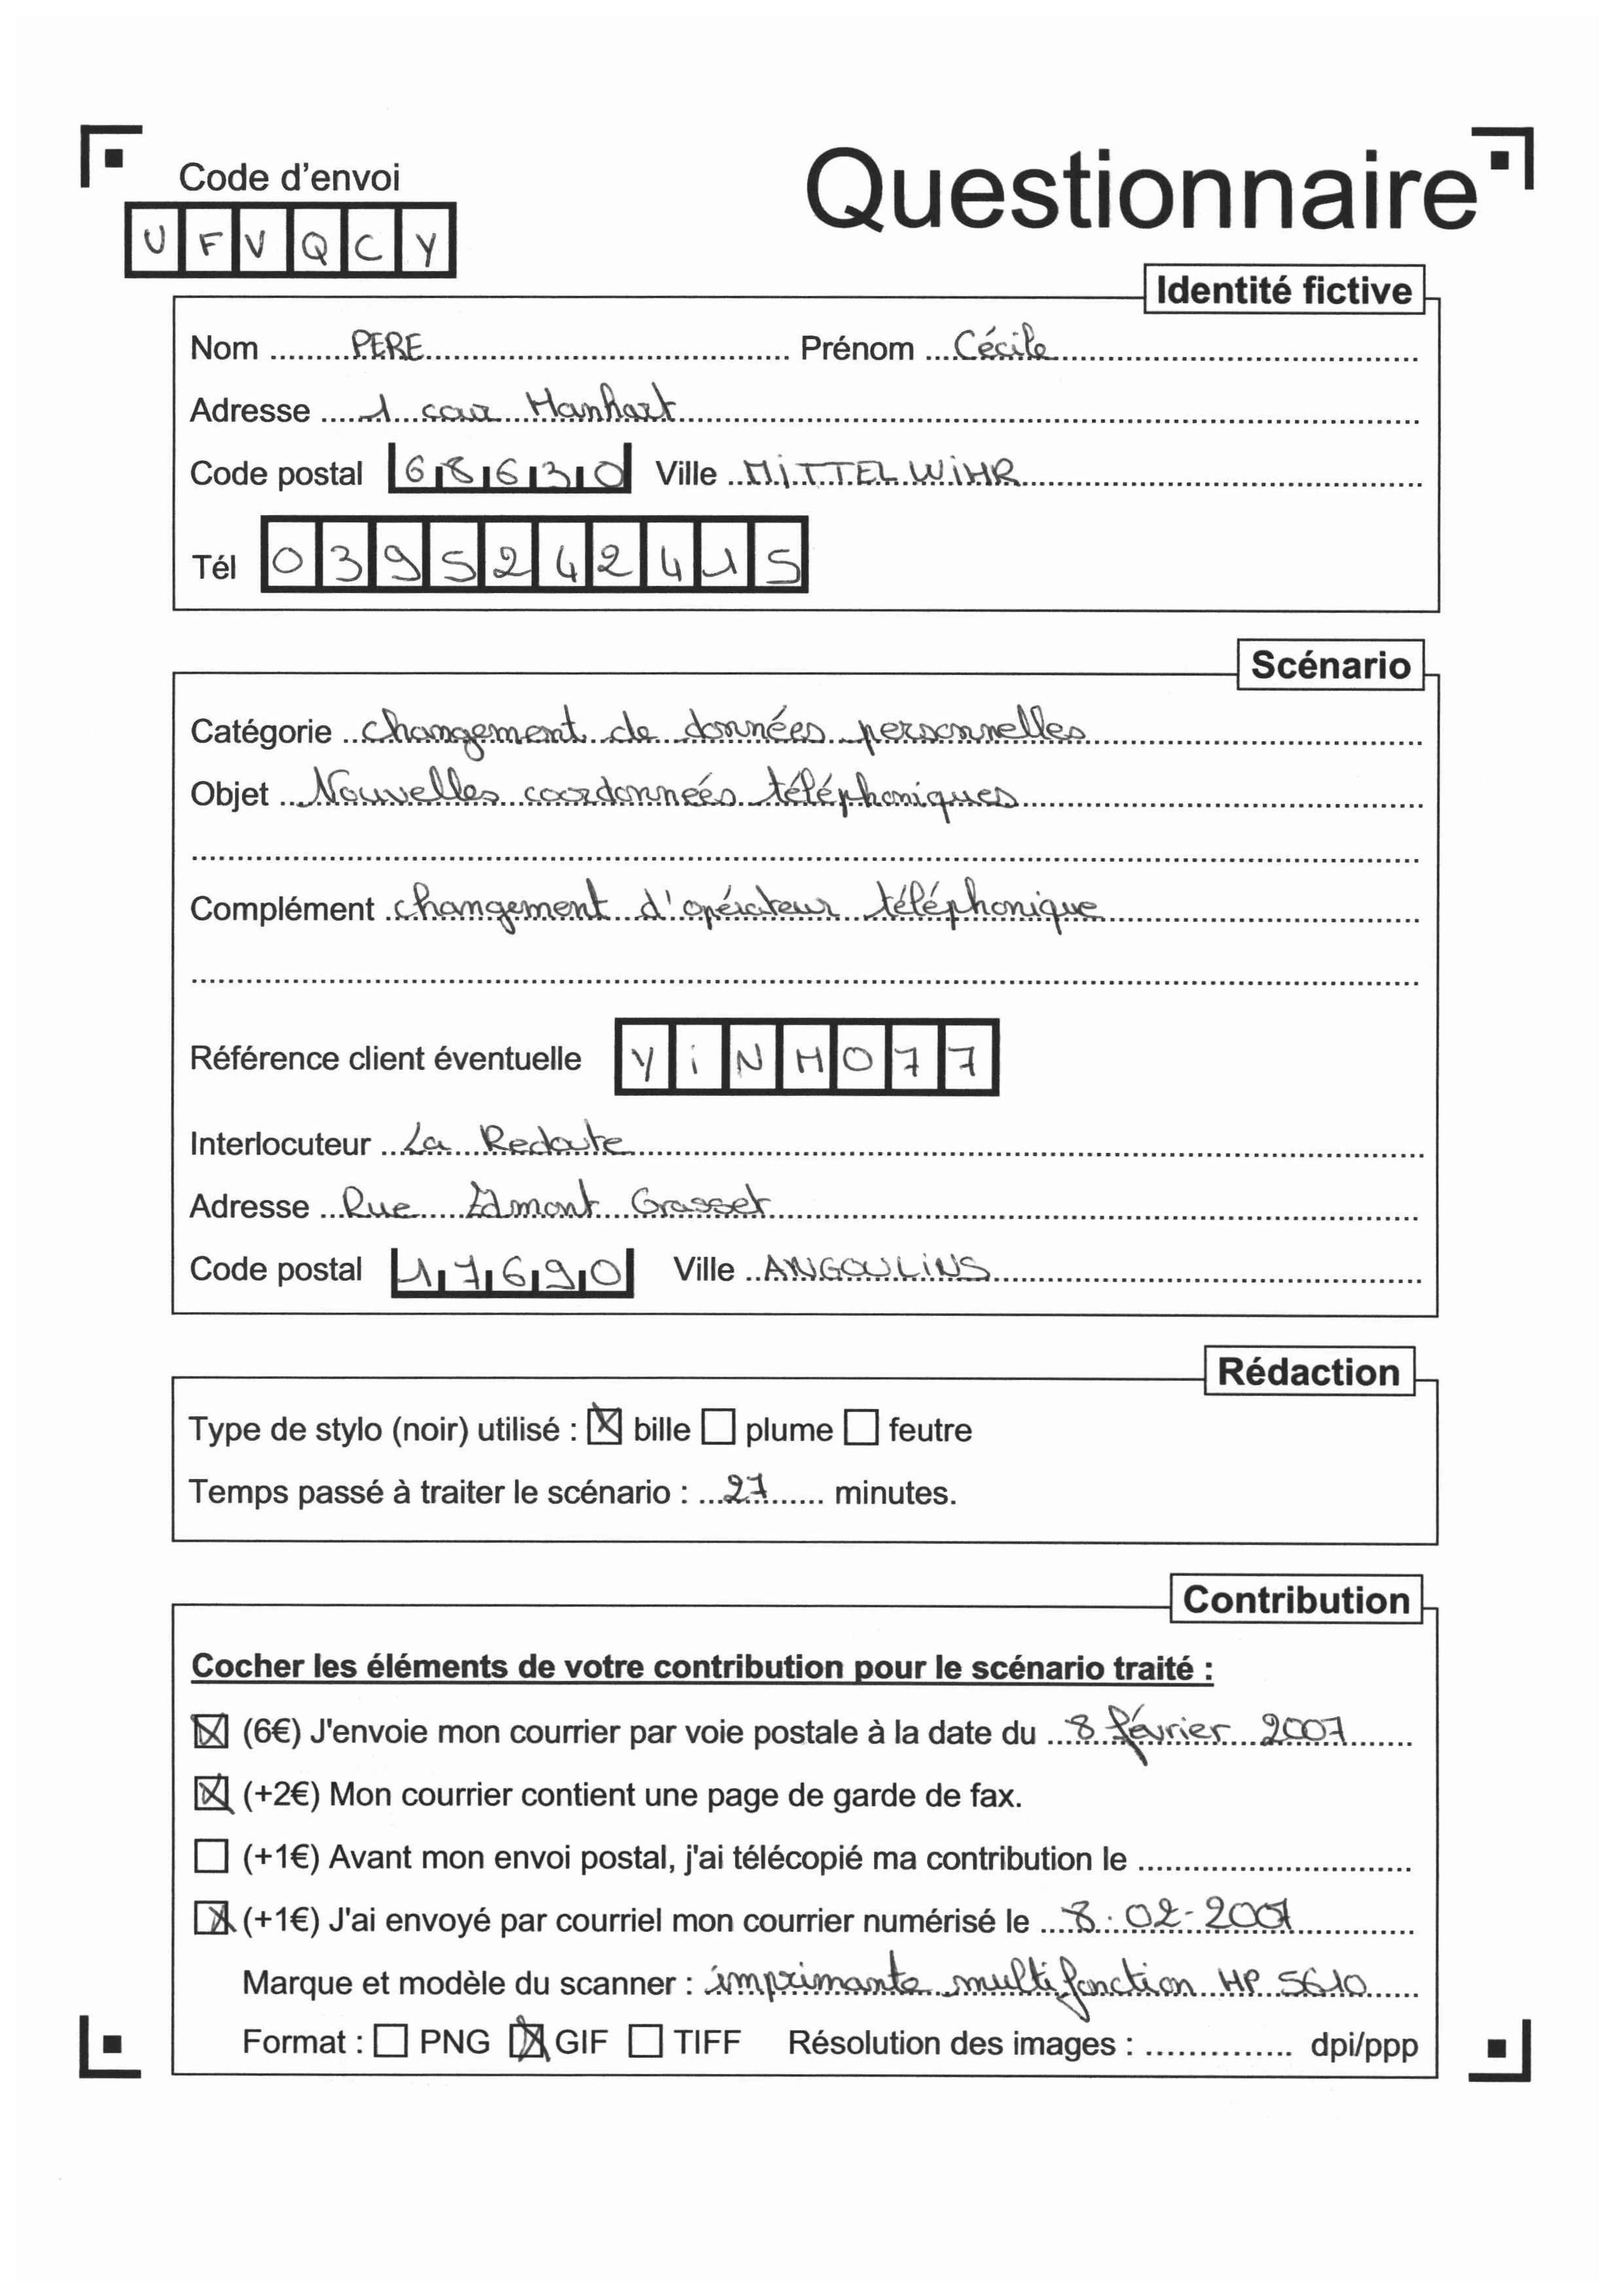 Code d'envoi
Questionnaire
UFVQCY
Identité fictive
Nom PERE Prénom Cécile
Adresse 1 cour Manhart
Code postal 68630 Ville MiTTELWiHR
Tél 0395242415
Scénario
Catégorie changement de données personnelles
Objet Nouvelles coordonnées téléphoniques
Complément changement d'opérateur téléphonique
Référence client éventuelle YiNMO77
Interlocuteur La Redoute
Adresse Rue Edmont Grasset
Code postal 17690 Ville ANGOULiNS
Rédaction
Type de stylo (noir) utilisé : bille plume feutre
Temps passé à traiter le scénario : 27 minutes.
Contribution
Cocher les éléments de votre contribution pour le scénario traité :
(6€) J'envoie mon courrier par voie postale à la date du 8 février 2007
(+2€) Mon courrier contient une page de garde de fax.
(+1€) Avant mon envoi postal, j'ai télécopié ma contribution le
(+1€) J'ai envoyé par courriel mon courrier numérisé le 8-02-2007
Marque et modèle du scanner : imprimante multifonction HP 5610
Format : PNG GIF TIFF Résolution des images : dpi/ppp